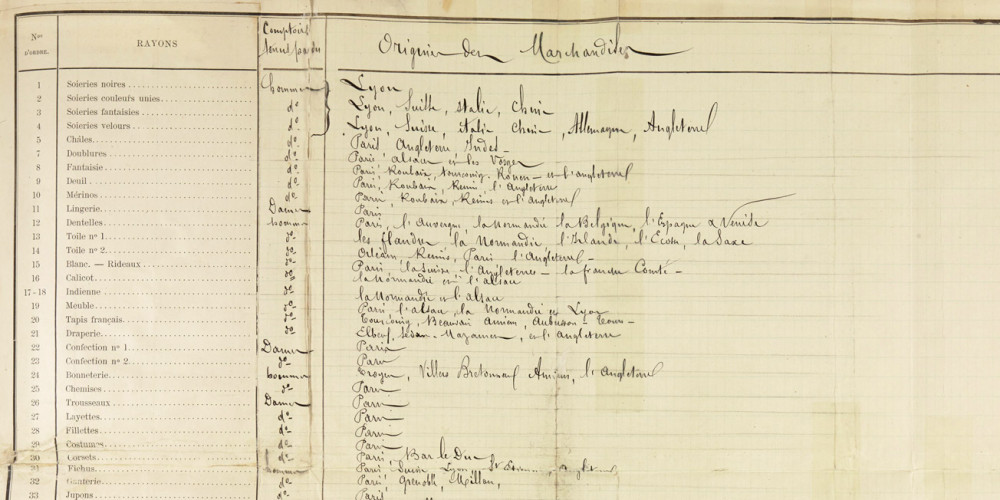 Nos D'ORDRE. RAYONS Comptoirs tenus par des Origine des Marchandises
1 Soieries noires hommes Lyon
2 Soieries couleurs unies do Lyon, Suisse, Italie, Chine
3 Soieries fantaisies do
4 Soieries velours do Lyon, Suisse, Italie Chine, Allemagne, Angleterre
5 Châles do Paris Angleterre Indes
7 Doublures do Paris, alsace et les Vosges
8 Fantaisie do Paris, Roubaix, tourcoing. Rouen et l'angleterre
9 Deuil do Paris, Roubaix, Reims, l'Angleterre
10 Mérinos do Paris, Roubaix, Reims et l'Angleterre
11 Lingerie Dames Paris
12 Dentelles hommes Paris, l'Auvergne, la Normandie la Belgique, l'Espagne & Venise
13 Toile no 1 do les flandres, la Normandie, l'Irlande, l'Ecosse, la Saxe
14 Toile no 2 do Orléans Reims, Paris l'Angleterre
15 Blanc. — Rideaux do Paris la Suisse l'Angleterre la franche Comté
16 Calicot do la Normandie et l'alsace
17-18 Indienne do la Normandie et l'alsace
19 Meuble do Paris l'alsace, la Normandie et Lyon
20 Tapis français do Tourcoing, Beauvais Amiens, Aubusson Tours
21 Draperie do Elbeuf, Sedan Mazamet, et l'Angleterre
22 Confection no 1 Dames Paris
23 Confection no 2 do Paris
24 Bonneterie hommes Troyes, Villers Bretonneux Amiens, l'Angleterre
25 Chemises do Paris
26 Trousseaux Dames Paris
27 Layettes do Paris
28 Fillettes do Paris
29 Costumes do Paris
30 Corsets do Paris Bar le Duc
31 Fichus hommes Paris, Suisse Lyon, St Etienne, angleterre
32 Ganterie do Paris, Grenoble, Millau,
33 Jupons do Paris